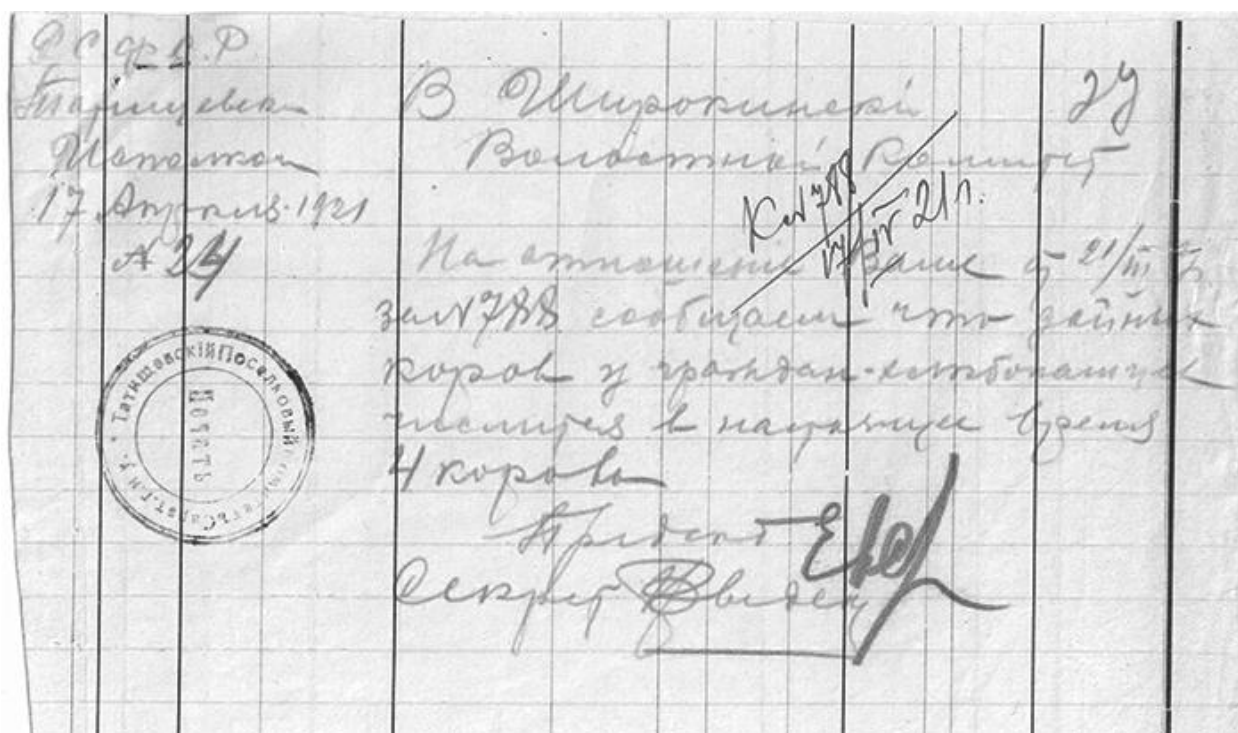 Р С Ф С. Р
Татищевск
Исполком
17 Апреля 1921
№ 24
Татищевскій Поселковый
Печать
В Широкинскій
Волостной
К №788
17/IV 21 г.
На отношение Ваше от 21/III
за №788 сообщаем что дойных
коров у граждан
числится в настоящее время
4 коровы
Председ
Секрет